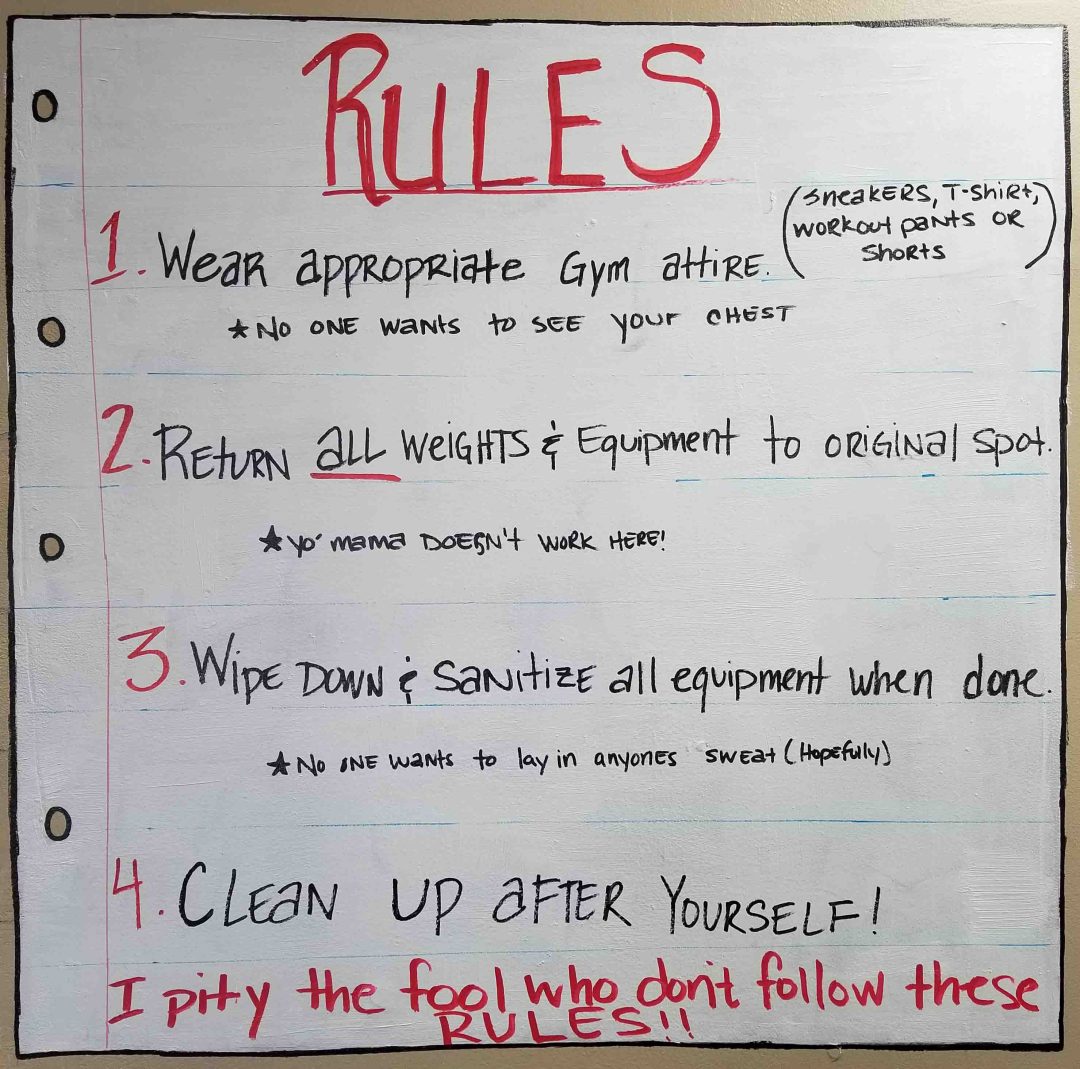 RULES
1. Wear appropriate Gym attire. (Sneakers, T-Shirt,
workout pants or
Shorts)
★ No one wants to see your chest
2. Return all weights & Equipment to original spot.
★ Yo' mama doesn't work here!
3. Wipe down & sanitize all equipment when done.
★ No one wants to lay in anyones sweat (Hopefully)
4. Clean up after yourself!
I pity the fool who don't follow these
RULES!!